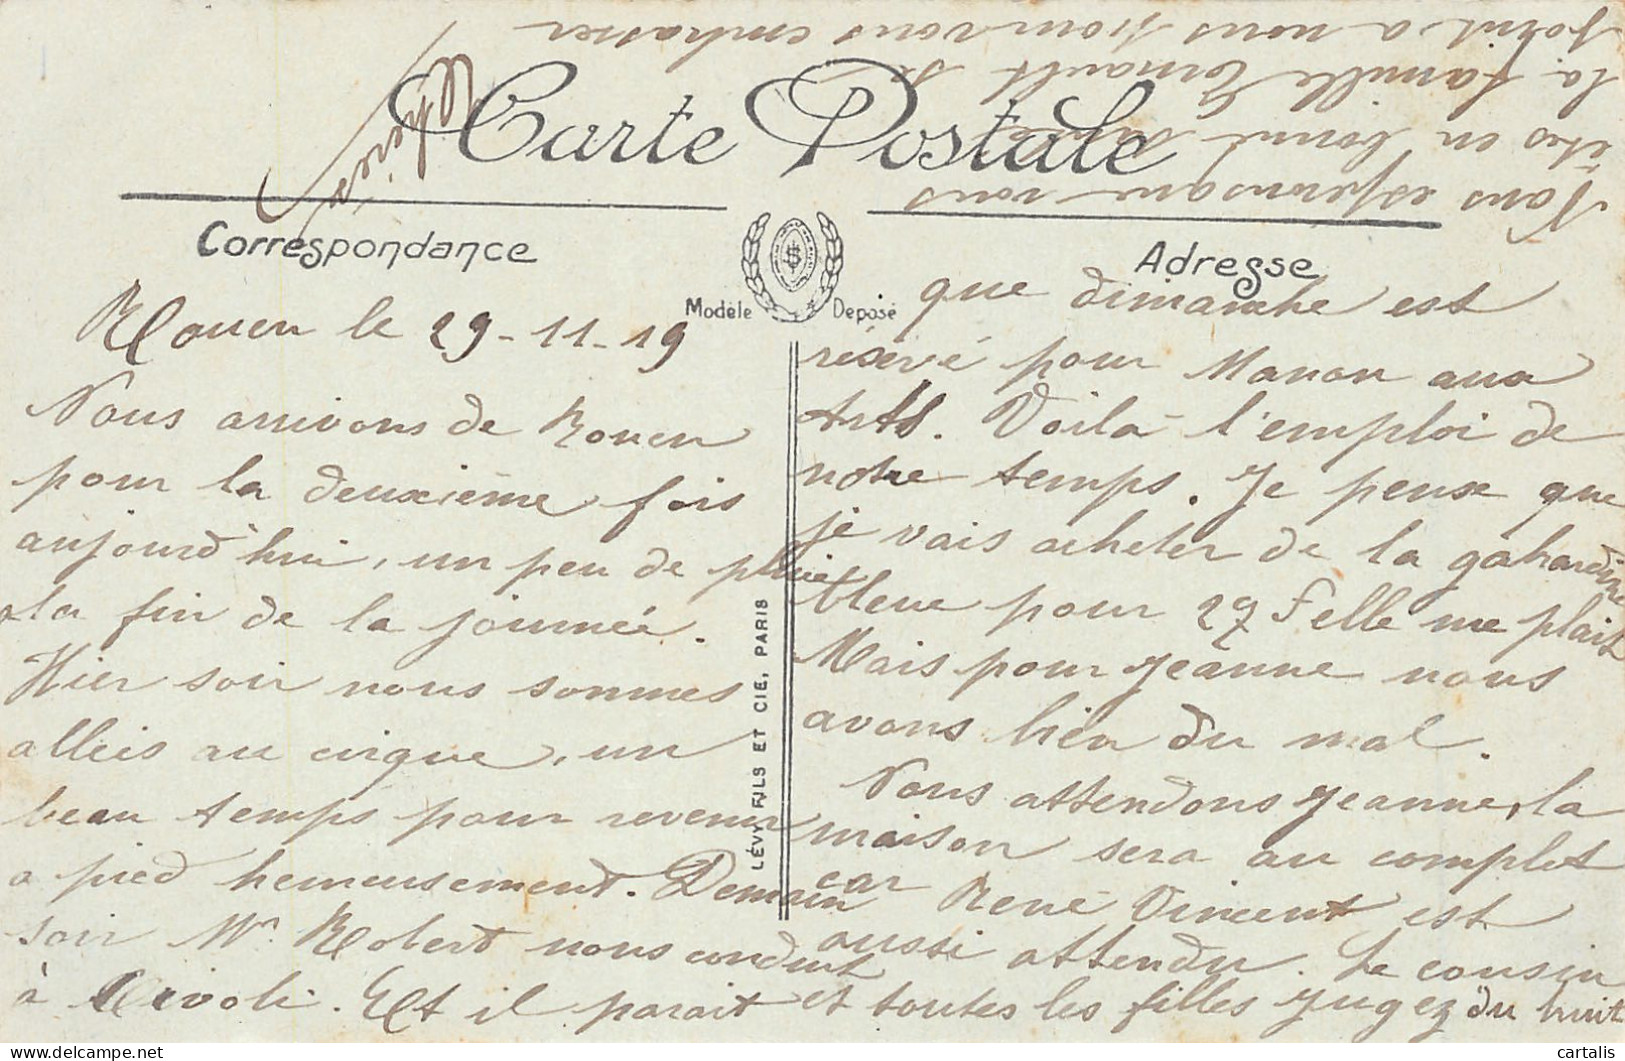 Carte Postale
Correspondance
Adresse
Modèle Déposé
LÉVY FILS ET CIE, PARIS
Rouen le 29-11-19
Nous arrivons de Rouen
pour la deuxième fois
aujourd'hui, un peu de pluie
à la fin de la journée.
Hier soir nous sommes
alleis au cirque, un
beau temps pour revenir
a pied heureusement. Demain
soir Mr Robert nous conduit
à Tivoli. Et il parait
que dimanche est
réservé pour Manon aux
Arts. Voilà l'emploi de
notre temps. Je pense que
je vais acheter de la gabardine
bleue pour 27 f elle me plait
Mais pour Jeanne nous
avons bien du mal.
Nous attendons Jeanne, la
maison sera au complet
car René Vincent est
aussi attendu. Le cousin
et toutes les filles Jugez du bruit
Nous esperons que vous
êtes en bonne santé
la famille se
joint a nous pour vous embrasser